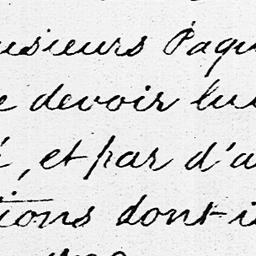 usieurs Paqu
e devoir lui
, et par d'a
tions dont i